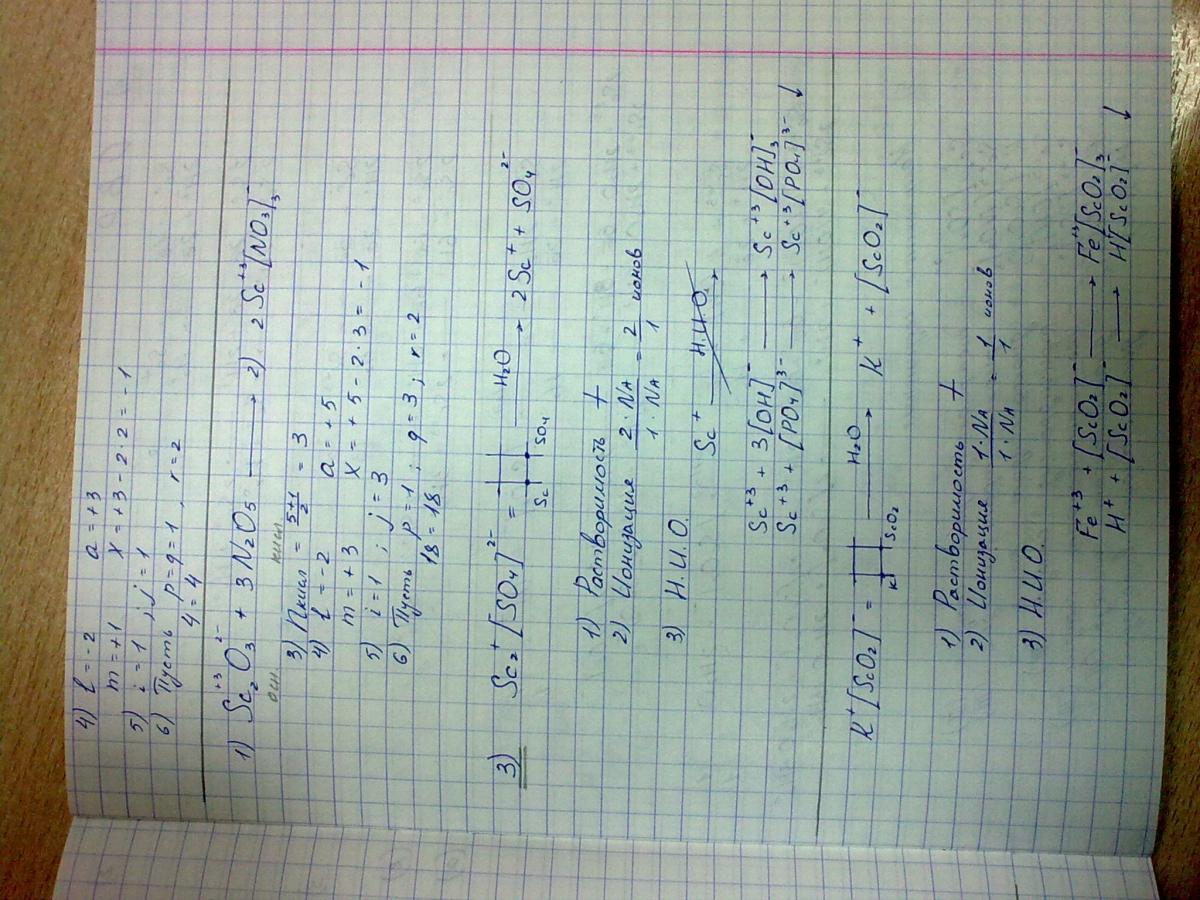 4) ℓ = -2 a = +3
m = +1 x = +3 - 2·2 = -1
5) i = 1 , j = 1
6) Пусть p = q = 1 , r = 2
4 = 4
1) Sc₂⁺³O₃²⁻ + 3N₂O₅ ⟶ 2) 2Sc⁺³[NO₃]₃⁻
осн. кисл.
3) Пкисл = (5+1)/2 = 3
4) ℓ = -2 a = +5
m = +3 x = +5 - 2·3 = -1
5) i = 1 ; j = 3
6) Пусть p = 1 ; q = 3 ; r = 2
18 = 18
3) Sc₂⁺[SO₄]²⁻ = —H₂O⟶ 2Sc⁺ + SO₄²⁻
Sc SO₄
1) Растворимость +
2) Ионизация 2·NA/1·NA = 2/1 ионов
3) Н.И.О. Sc⁺ —Н.И.О.→
Sc⁺³ + 3[OH]⁻ ⟶ Sc⁺³[OH]₃⁻
Sc⁺³ + [PO₄]³⁻ ⟶ Sc⁺³[PO₄]³⁻ ↓
K⁺[ScO₂]⁻ = —H₂O⟶ K⁺ + [ScO₂]⁻
K ScO₂
1) Растворимость +
2) Ионизация 1·NA/1·NA = 1/1 ионов
3) Н.И.О.
Fe⁺³ + [ScO₂]⁻ ⟶ Fe⁺³[ScO₂]₃⁻
H⁺ + [ScO₂]⁻ ⟶ H⁺[ScO₂]⁻ ↓